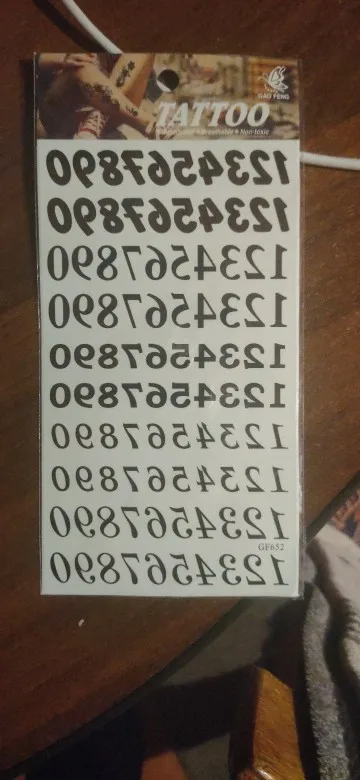 GAO FENG
TATTOO
Breathable • Non-toxic
1234567890
1234567890
1234567890
1234567890
1234567890
1234567890
1234567890
1234567890
1234567890
GF652
1234567890